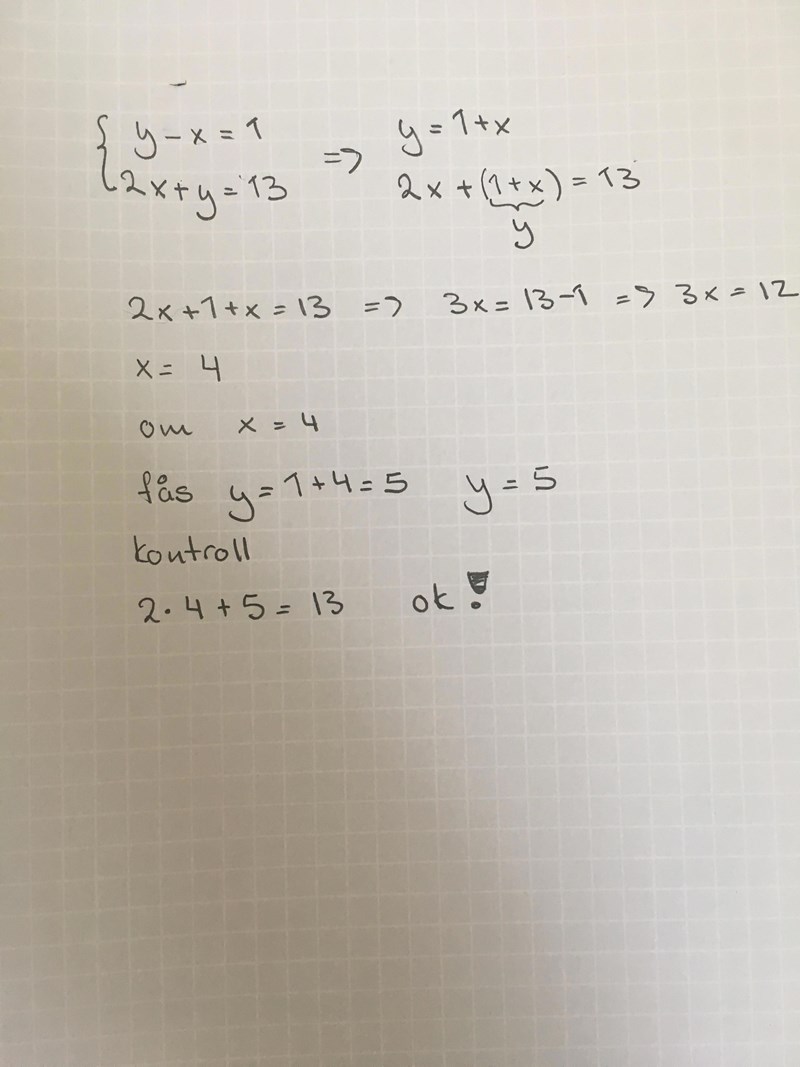 { y - x = 1 => y = 1 + x
2x + y = 13 2x + (1 + x) = 13
y
2x + 1 + x = 13 => 3x = 13 - 1 => 3x = 12
x = 4
om x = 4
fås y = 1 + 4 = 5 y = 5
kontroll
2 · 4 + 5 = 13 ok!